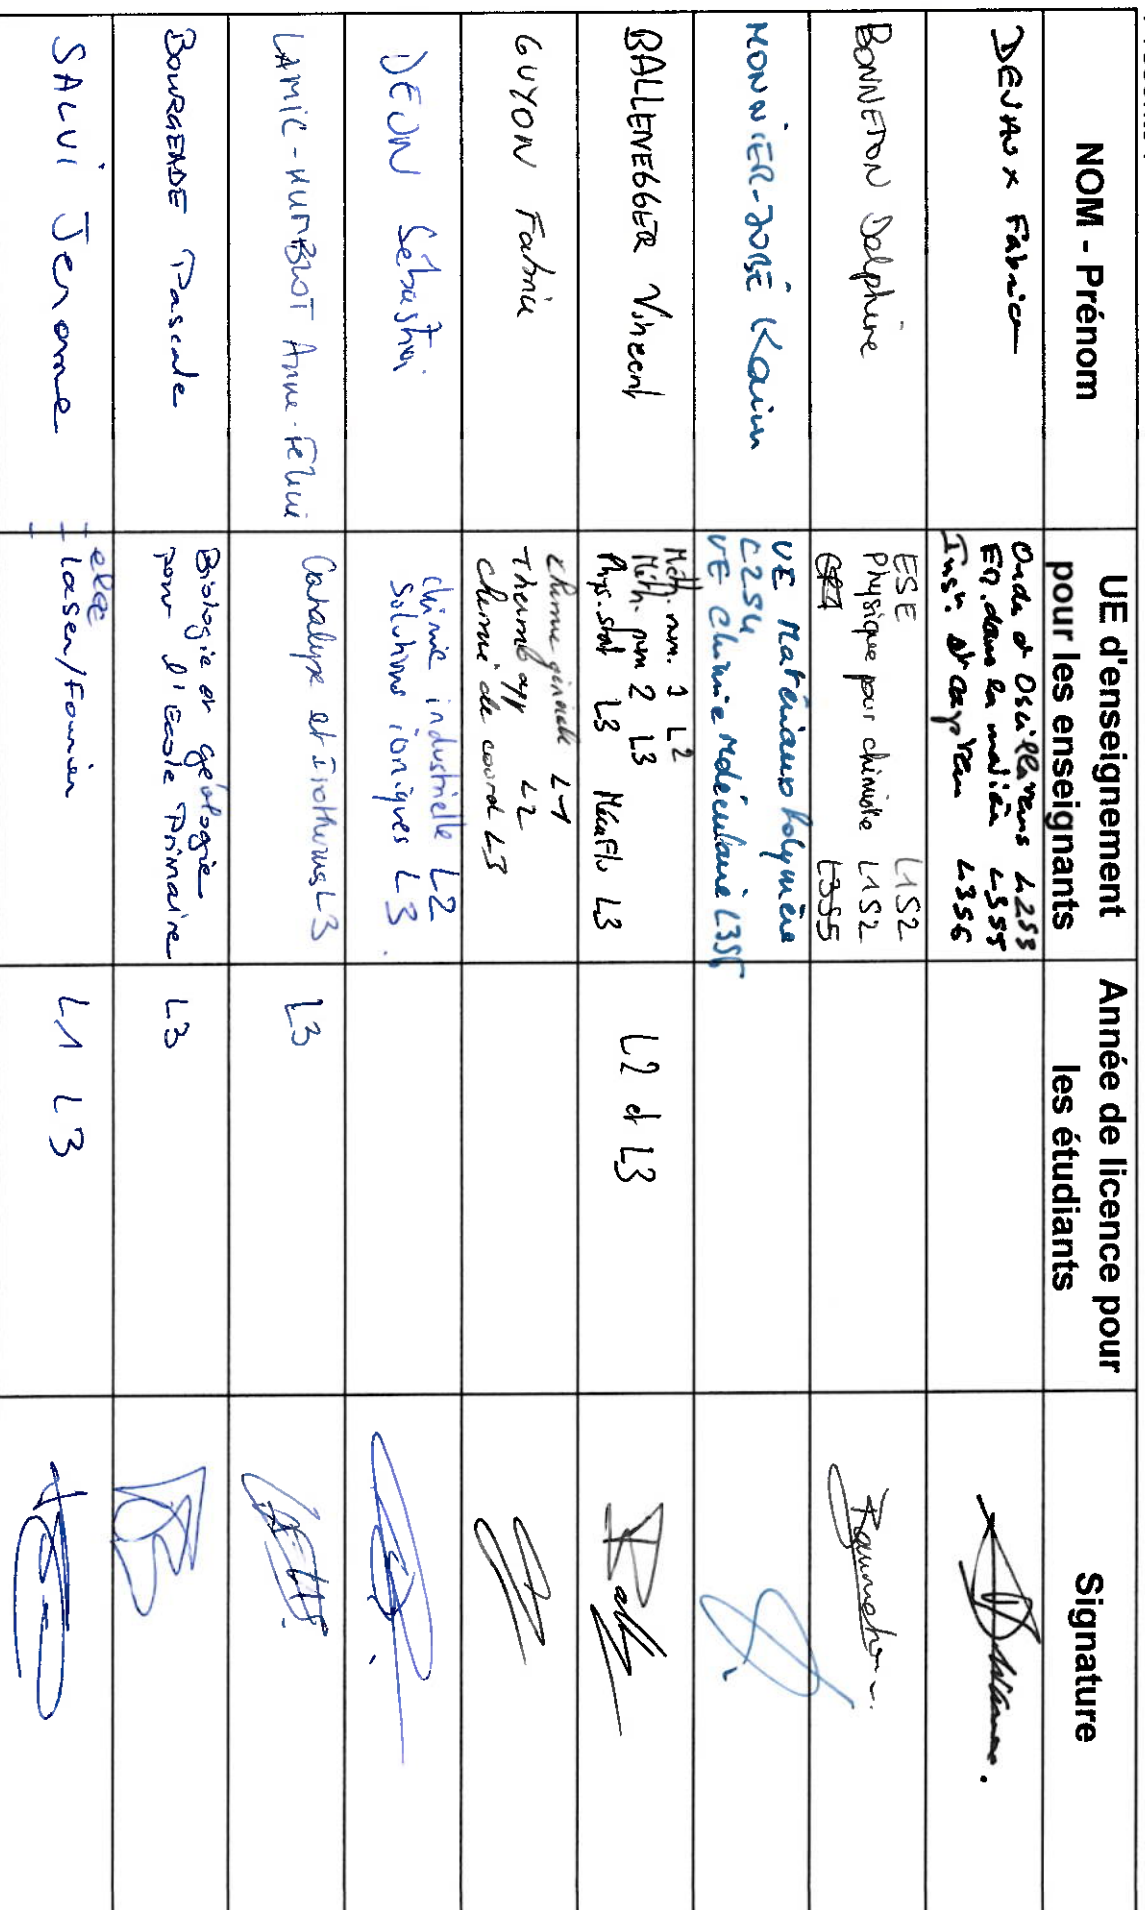 NOM - Prénom
UE d'enseignement
pour les enseignants
Année de licence pour
les étudiants
Signature
DEVAUX Fabrice
Onde et Oscillations L2S3
EM. dans la matière L3S5
Insn. et capteurs L3S6
BONNETON Delphine
ESE L1S2
Physique pour chimiste L1S2
L3S5
MONNIER-JOBÉ Karine
UE Matériaux Polymère
L2S4
UE Chimie Moléculaire L3S5
BALLENEGGER Vincent
Méth. num. 1 L2
Méth. num 2 L3
Phys. stat L3 MécaFlu L3
L2 et L3
GUYON Fabrice
Chimie générale L1
Thermo app L2
Chimie de coord L3
DEON Sébastien
Chimie industrielle L2
Solutions ioniques L3
LAMIC-HUMBLOT Anne-Félicie
Catalyse et Isothermes L3
L3
BOURGEADE Pascale
Biologie et géologie
pour l'Ecole Primaire
L3
SALVI Jerome
- elec
- laser/Fourier
L1 L3